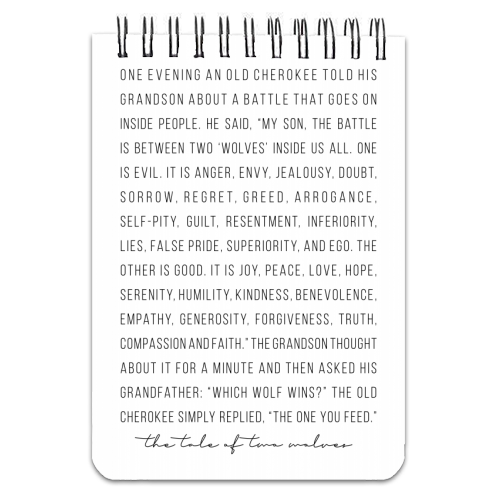 ONE EVENING AN OLD CHEROKEE TOLD HIS
GRANDSON ABOUT A BATTLE THAT GOES ON
INSIDE PEOPLE. HE SAID, "MY SON, THE BATTLE
IS BETWEEN TWO 'WOLVES' INSIDE US ALL. ONE
IS EVIL. IT IS ANGER, ENVY, JEALOUSY, DOUBT,
SORROW, REGRET, GREED, ARROGANCE,
SELF-PITY, GUILT, RESENTMENT, INFERIORITY,
LIES, FALSE PRIDE, SUPERIORITY, AND EGO. THE
OTHER IS GOOD. IT IS JOY, PEACE, LOVE, HOPE,
SERENITY, HUMILITY, KINDNESS, BENEVOLENCE,
EMPATHY, GENEROSITY, FORGIVENESS, TRUTH,
COMPASSION AND FAITH." THE GRANDSON THOUGHT
ABOUT IT FOR A MINUTE AND THEN ASKED HIS
GRANDFATHER: "WHICH WOLF WINS?" THE OLD
CHEROKEE SIMPLY REPLIED, "THE ONE YOU FEED."
the tale of two wolves